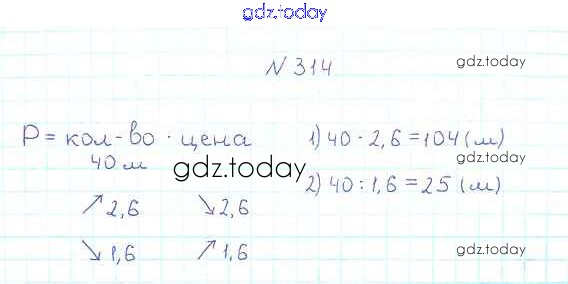 gdz.today
N 314
gdz.today
P = кол-во · цена
1) 40 · 2,6 = 104 (м)
40 м
gdz.today
gdz.today
2) 40 : 1,6 = 25 (м)
↗ 2,6 ↘ 2,6
↘ 1,6 ↗ 1,6
gdz.today